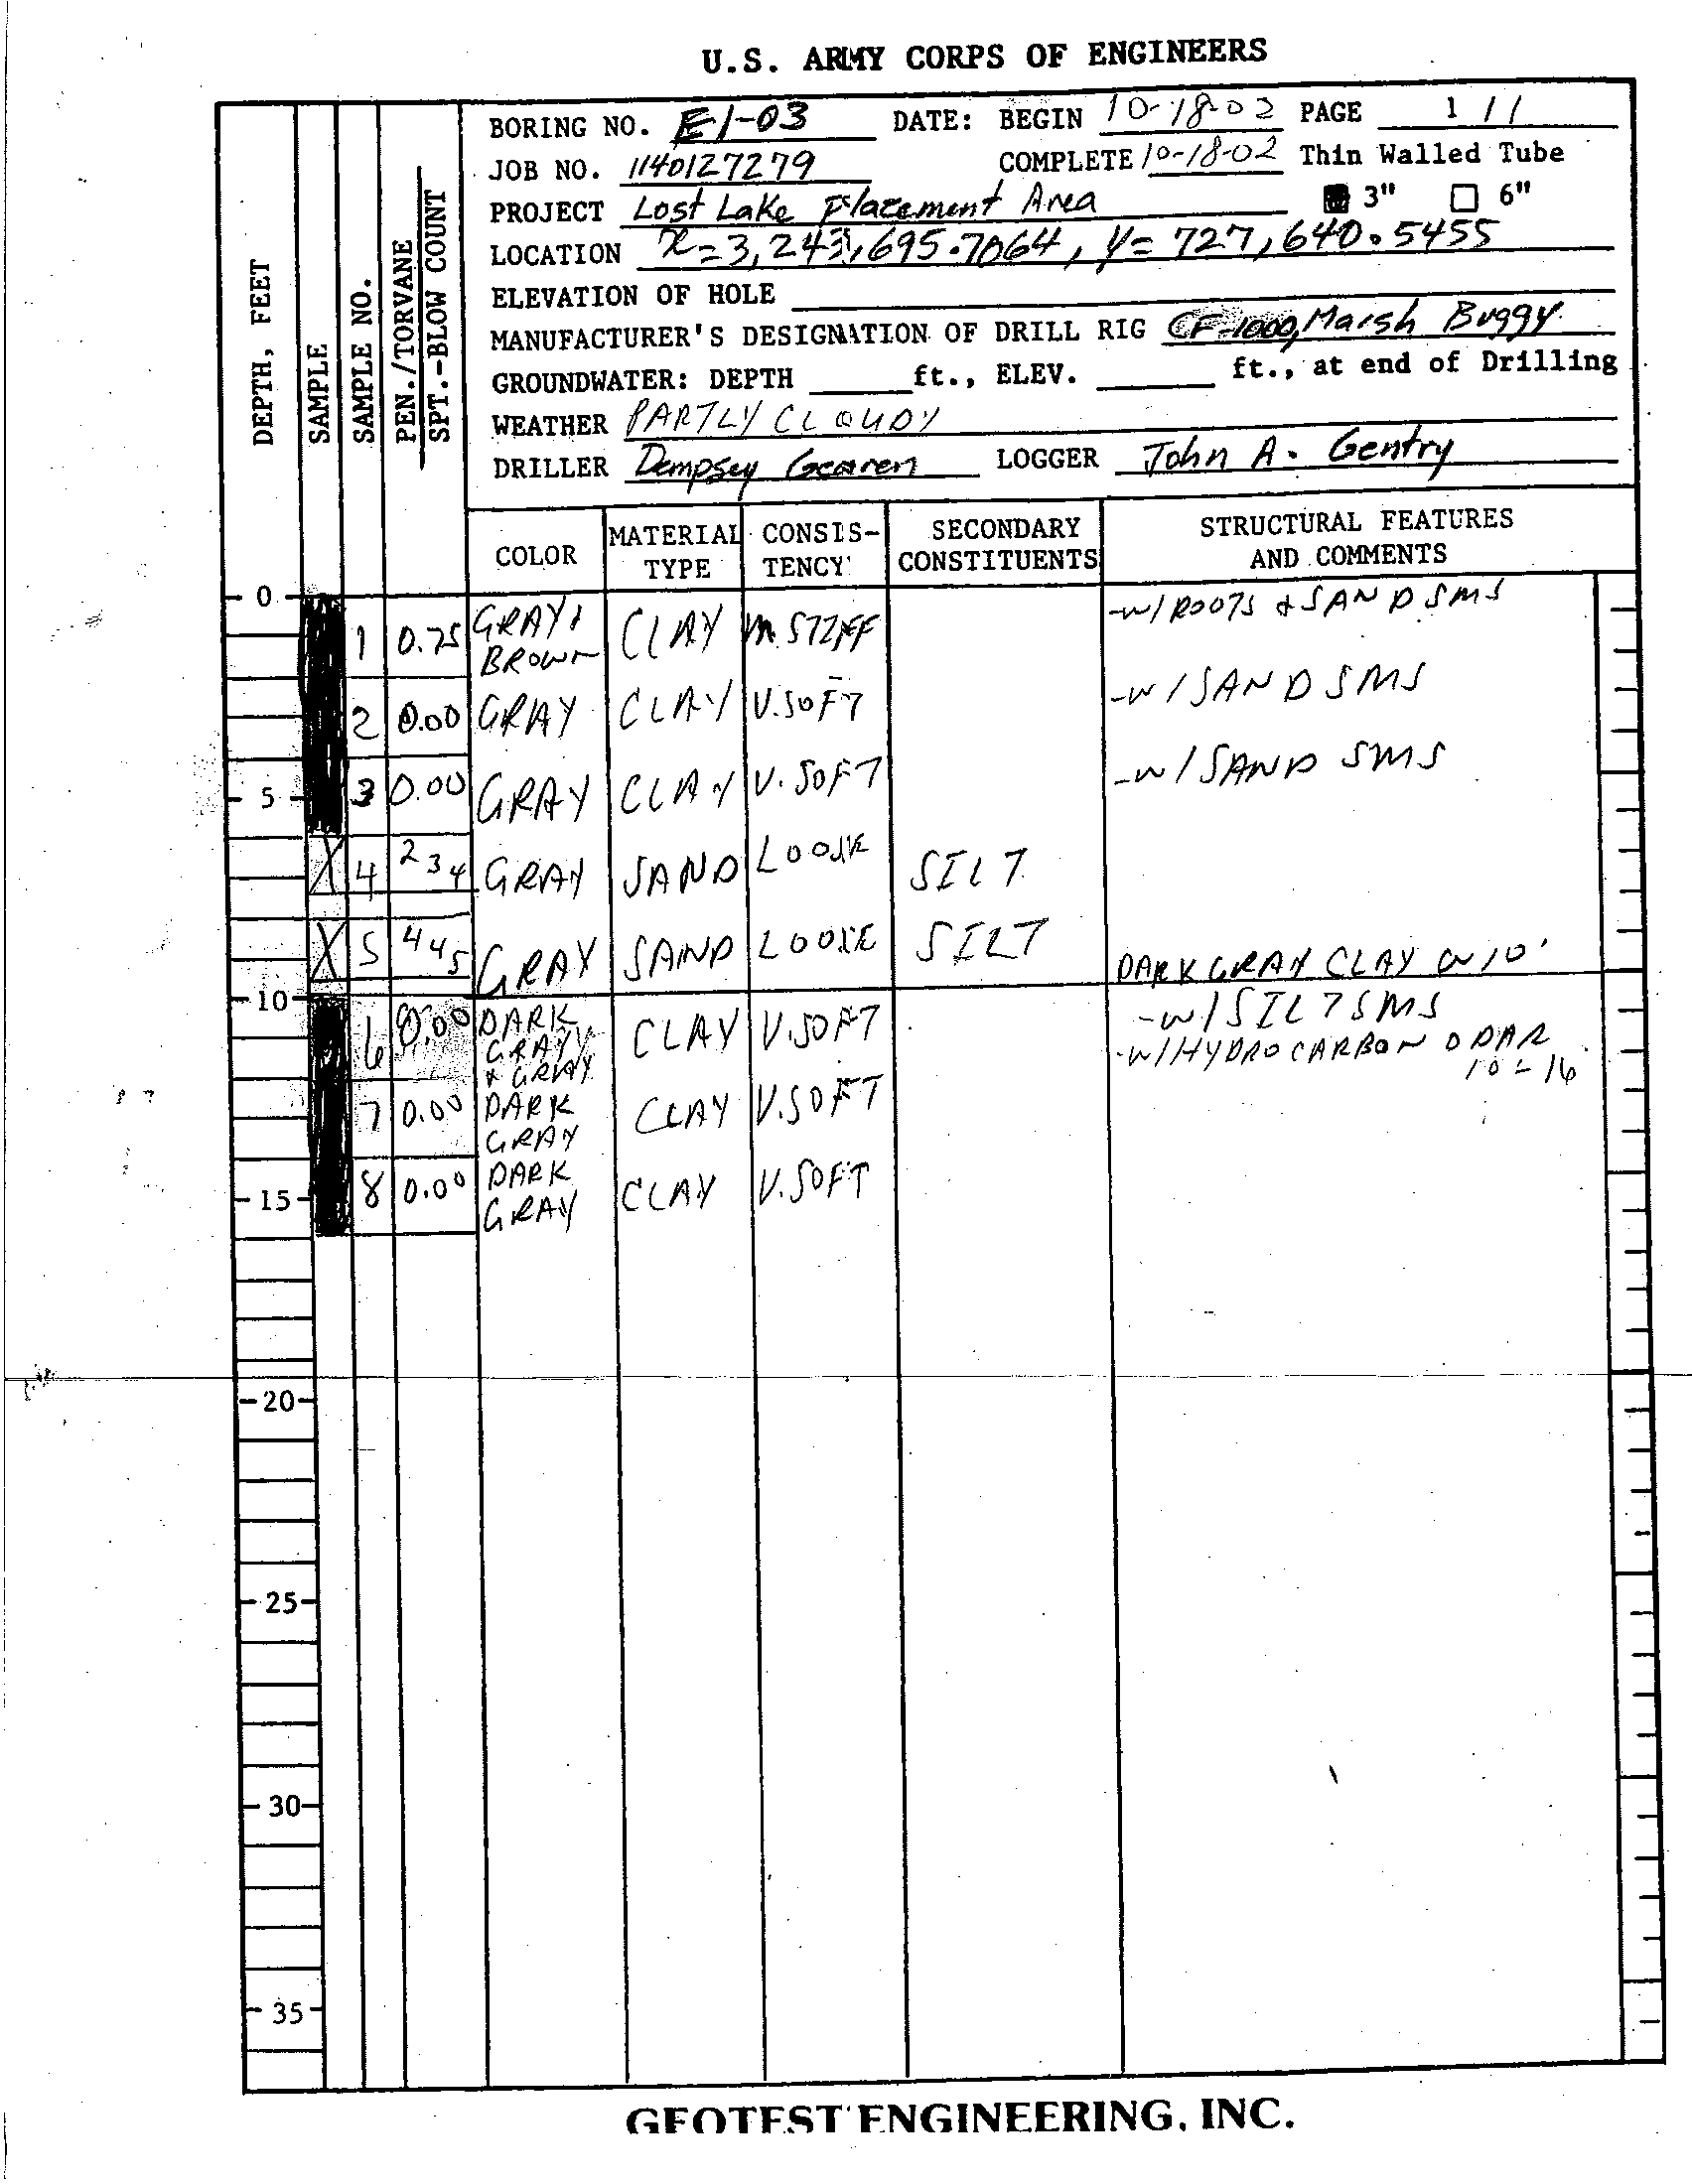 U.S. ARMY CORPS OF ENGINEERS
BORING NO. E1-03 DATE: BEGIN 10-18-02 PAGE 1 / 1
JOB NO. 1140127279 COMPLETE 10-18-02 Thin Walled Tube
PROJECT Lost Lake Placement Area 3" 6"
LOCATION x=3,243,695.7064, y= 727,640.5455
ELEVATION OF HOLE
MANUFACTURER'S DESIGNATION OF DRILL RIG CF-1000, Marsh Buggy
GROUNDWATER: DEPTH ft., ELEV. ft., at end of Drilling
WEATHER PARTLY CLOUDY
DRILLER Dempsey Gearen LOGGER John A. Gentry
DEPTH, FEET
SAMPLE
SAMPLE NO.
PEN./TORVANE
SPT.-BLOW COUNT
COLOR MATERIAL TYPE CONSIS-TENCY SECONDARY CONSTITUENTS STRUCTURAL FEATURES AND COMMENTS
0
1 0.75 GRAY & BROWN CLAY M. STIFF -W/ROOTS & SAND SMS
2 0.00 GRAY CLAY V.SOFT -W/SAND SMS
5
3 0.00 GRAY CLAY V.SOFT -W/SAND SMS
4 2 3 4 GRAY SAND LOOSE SILT
5 4 4 5 GRAY SAND LOOSE SILT DARK GRAY CLAY @ 10'
10
6 0.00 DARK GRAY & GRAY CLAY V.SOFT -W/SILT SMS
-W/HYDROCARBON ODAR 10-16
7 0.00 DARK GRAY CLAY V.SOFT
15
8 0.00 DARK GRAY CLAY V.SOFT
20
25
30
35
GEOTEST ENGINEERING, INC.